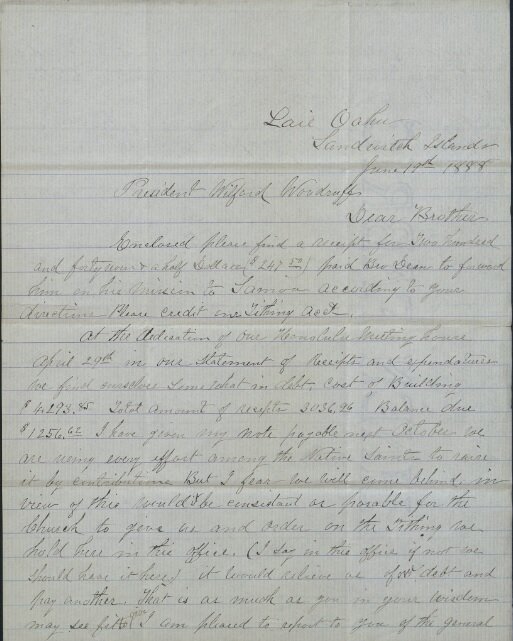 Laie Oahu
Sandwitch Islands
June 19th 1888
President Wilford Woodruff
Dear Brother
Enclosed please find a receipt for Two hundred
and forty & a half Dollars ($247 50) paid Bro Dean to forward
him on his mission to Samoa according to your
directions Please credit our Tithing act.
At the dedication of our Honolulu Meeting house
April 29th in our Statement of Receipts and expendatures
we find ourselves Some what in debt cost of Building
$4293.85 Total amount of receipts 3036.96 Balance due
$1256.62 I have given my note payable next October we
are using every effort among the Native Saints to raise
it by contributions But I fear we will come behind, in
view of this would be consistant or posable for the
Church to give us and order on the Tithing we
hold here in this office. (I say in this office if not we
should have it here) it would relieve us of debt and
pay another. That is as much as you in your wisdom
may see fit I am pleased to report to you of the general